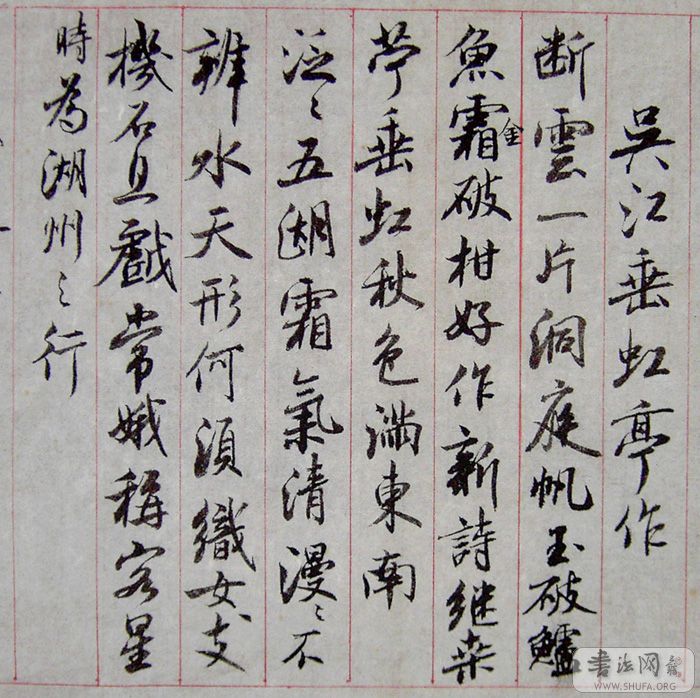 吳江垂虹亭作
断雲一片洞庭帆玉破鱸
魚霜金破柑好作新詩继桑
苧垂虹秋色滿東南
泛〻五湖霜氣清漫〻不
辨水天形何須織女支
機石且戲常娥稱客星
時為湖州〻行
書法网
WWW.SHUFA.ORG